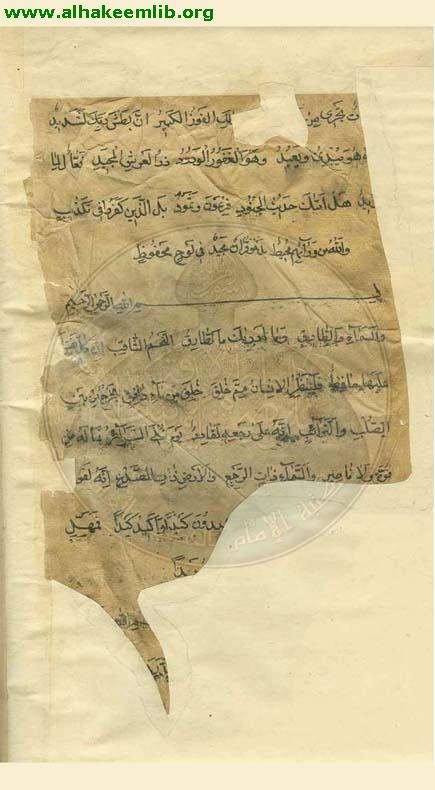 www.alhakeemlib.org
تجري من لك الفوز الكبير ان بطش ربك لشديد
هو يبدئ ويعيد وهو الغفور الودود ذو العرش المجيد فعال لما
يد هل اتىك حديث الجنود فرعون وثمود بل الذين كفروا في تكذيب
والله من ورائهم محيط بل هو قران مجيد في لوح محفوظ
بسم الله الرحمن الرحيم
والسماء والطارق وما ادريك ما الطارق النجم الثاقب ان كل نفس
عليها حافظ فلينظر الانسان مم خلق خلق من ماء دافق يخرج من بين
الصلب والترائب انه على رجعه لقادر يوم تبلى السرائر فما له من
قوة ولا ناصر والسماء ذات الرجع والارض ذات الصدع انه لقو
يدون كيدا واكيد كيدا فمهل
يدا